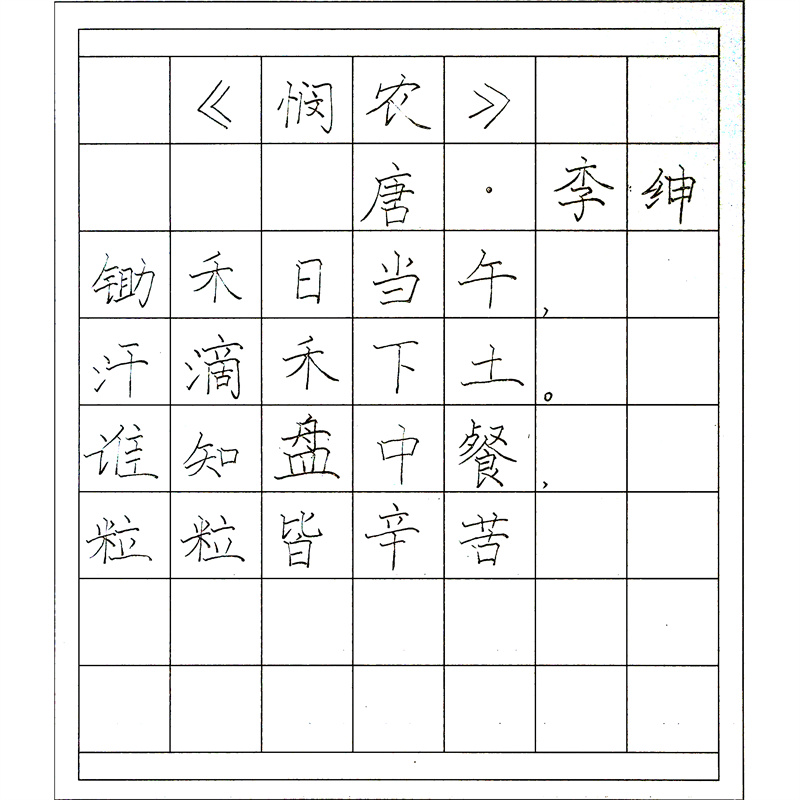 《悯农》
唐·李绅
锄禾日当午,
汗滴禾下土。
谁知盘中餐,
粒粒皆辛苦